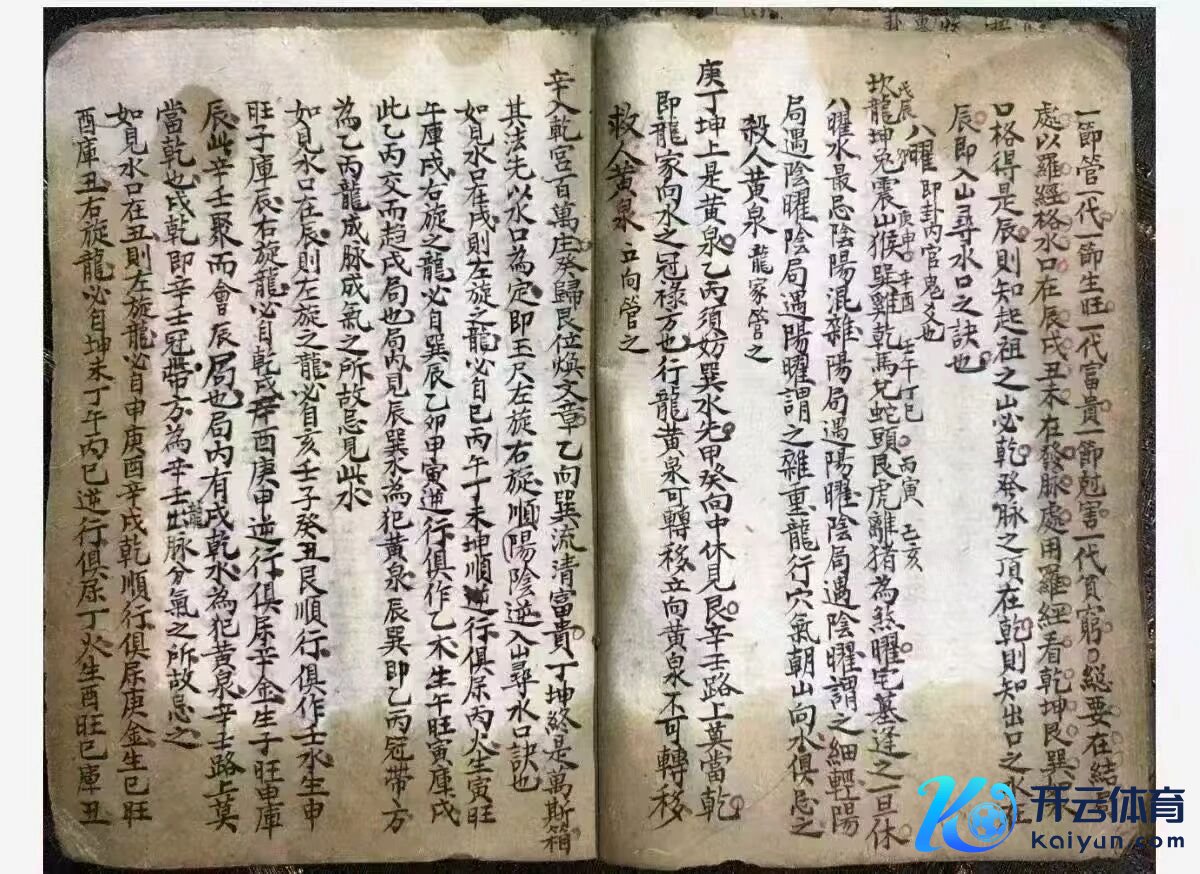 一節管一代一節生旺一代富貴一節尅害一代貧窮總要在結
處以羅經格水口在辰戌丑未在發脉處用羅經看乾坤艮巽
口格得是辰則知起祖之山必乾發脉之頂在乾則知出口之水在
辰即入山尋水口之訣也
八曜 即卦內官鬼爻也
戊辰 庚申 辛酉 壬午 丁巳 丙寅 己亥
坎龍坤兔震山猴巽雞乾馬兌蛇頭艮虎離猪為煞曜宅墓逢之一旦休
八曜水最忌陰陽混雜陽局遇陽曜陰局遇陰曜謂之細輕陽
局遇陰曜陰局遇陽曜謂之雜重龍行穴氣朝山向水俱忌之
殺人黄泉 龍家管之
庚丁坤上是黄泉乙丙須妨巽水先甲癸向中休見艮辛壬路上莫當乾
即龍家向水之冠祿方也行龍黄泉可轉移立向黄泉不可轉移
救人黄泉 立向管之
辛入乾宮百萬庄癸歸艮位煥文章乙向巽流清富貴丁坤終是萬斯箱
其法先以水口為定即玉尺左旋右旋順陽陰逆入山尋水口訣也
如見水口在戌則左旋之龍必自巳丙午丁未坤順逆行俱屎丙火生寅旺
午庫戌右旋之龍必自巽辰乙卯甲寅逆行俱作乙木生午旺寅庫戌
此乙丙交而趋戌局也局內見辰巽水為犯黄泉辰巽即乙丙冠帶方
為乙丙龍成脉成氣之所故忌見此水
如見水口在辰則左旋之龍必自亥壬子癸丑艮順行俱作壬水生申
旺子庫辰右旋龍必自乾戌辛酉庚申逆行俱屎辛金生子旺申庫
辰此辛壬聚而會辰局也局內有戌乾水為犯黄泉辛壬路上莫
當乾也戌乾即辛壬冠帶方為辛壬龍出脉分氣之所故忌之
如見水口在丑則左旋龍必自申庚酉辛戌乾順行俱屎庚金生巳旺
酉庫丑右旋龍必自坤未丁午丙巳逆行俱屎丁火生酉旺巳庫丑
开云体育
Kaiyun.com